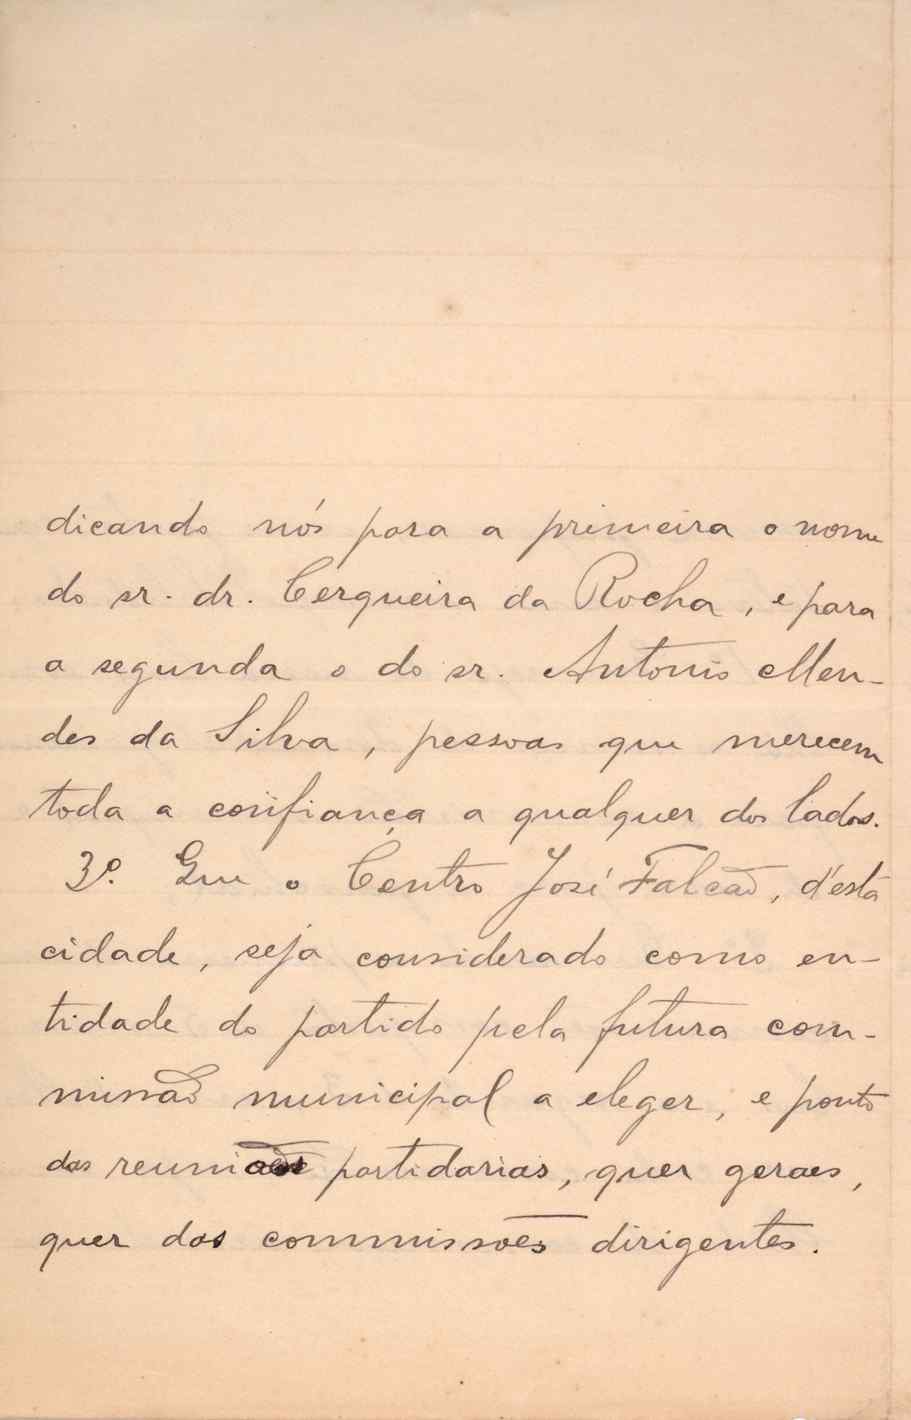 dicando nós para a primeira o nome
do sr. dr. Cerqueira da Rocha, e para
a segunda o do sr. Antonio Men-
des da Silva, pessoas que merecem
toda a confiança a qualquer dos lados.
3º. Que o Centro José Falcão, d'esta
cidade, seja considerado como en-
tidade do partido pela futura com-
missão municipal a eleger, e ponto
das reuniões partidarias, quer geraes,
quer das commissões dirigentes.